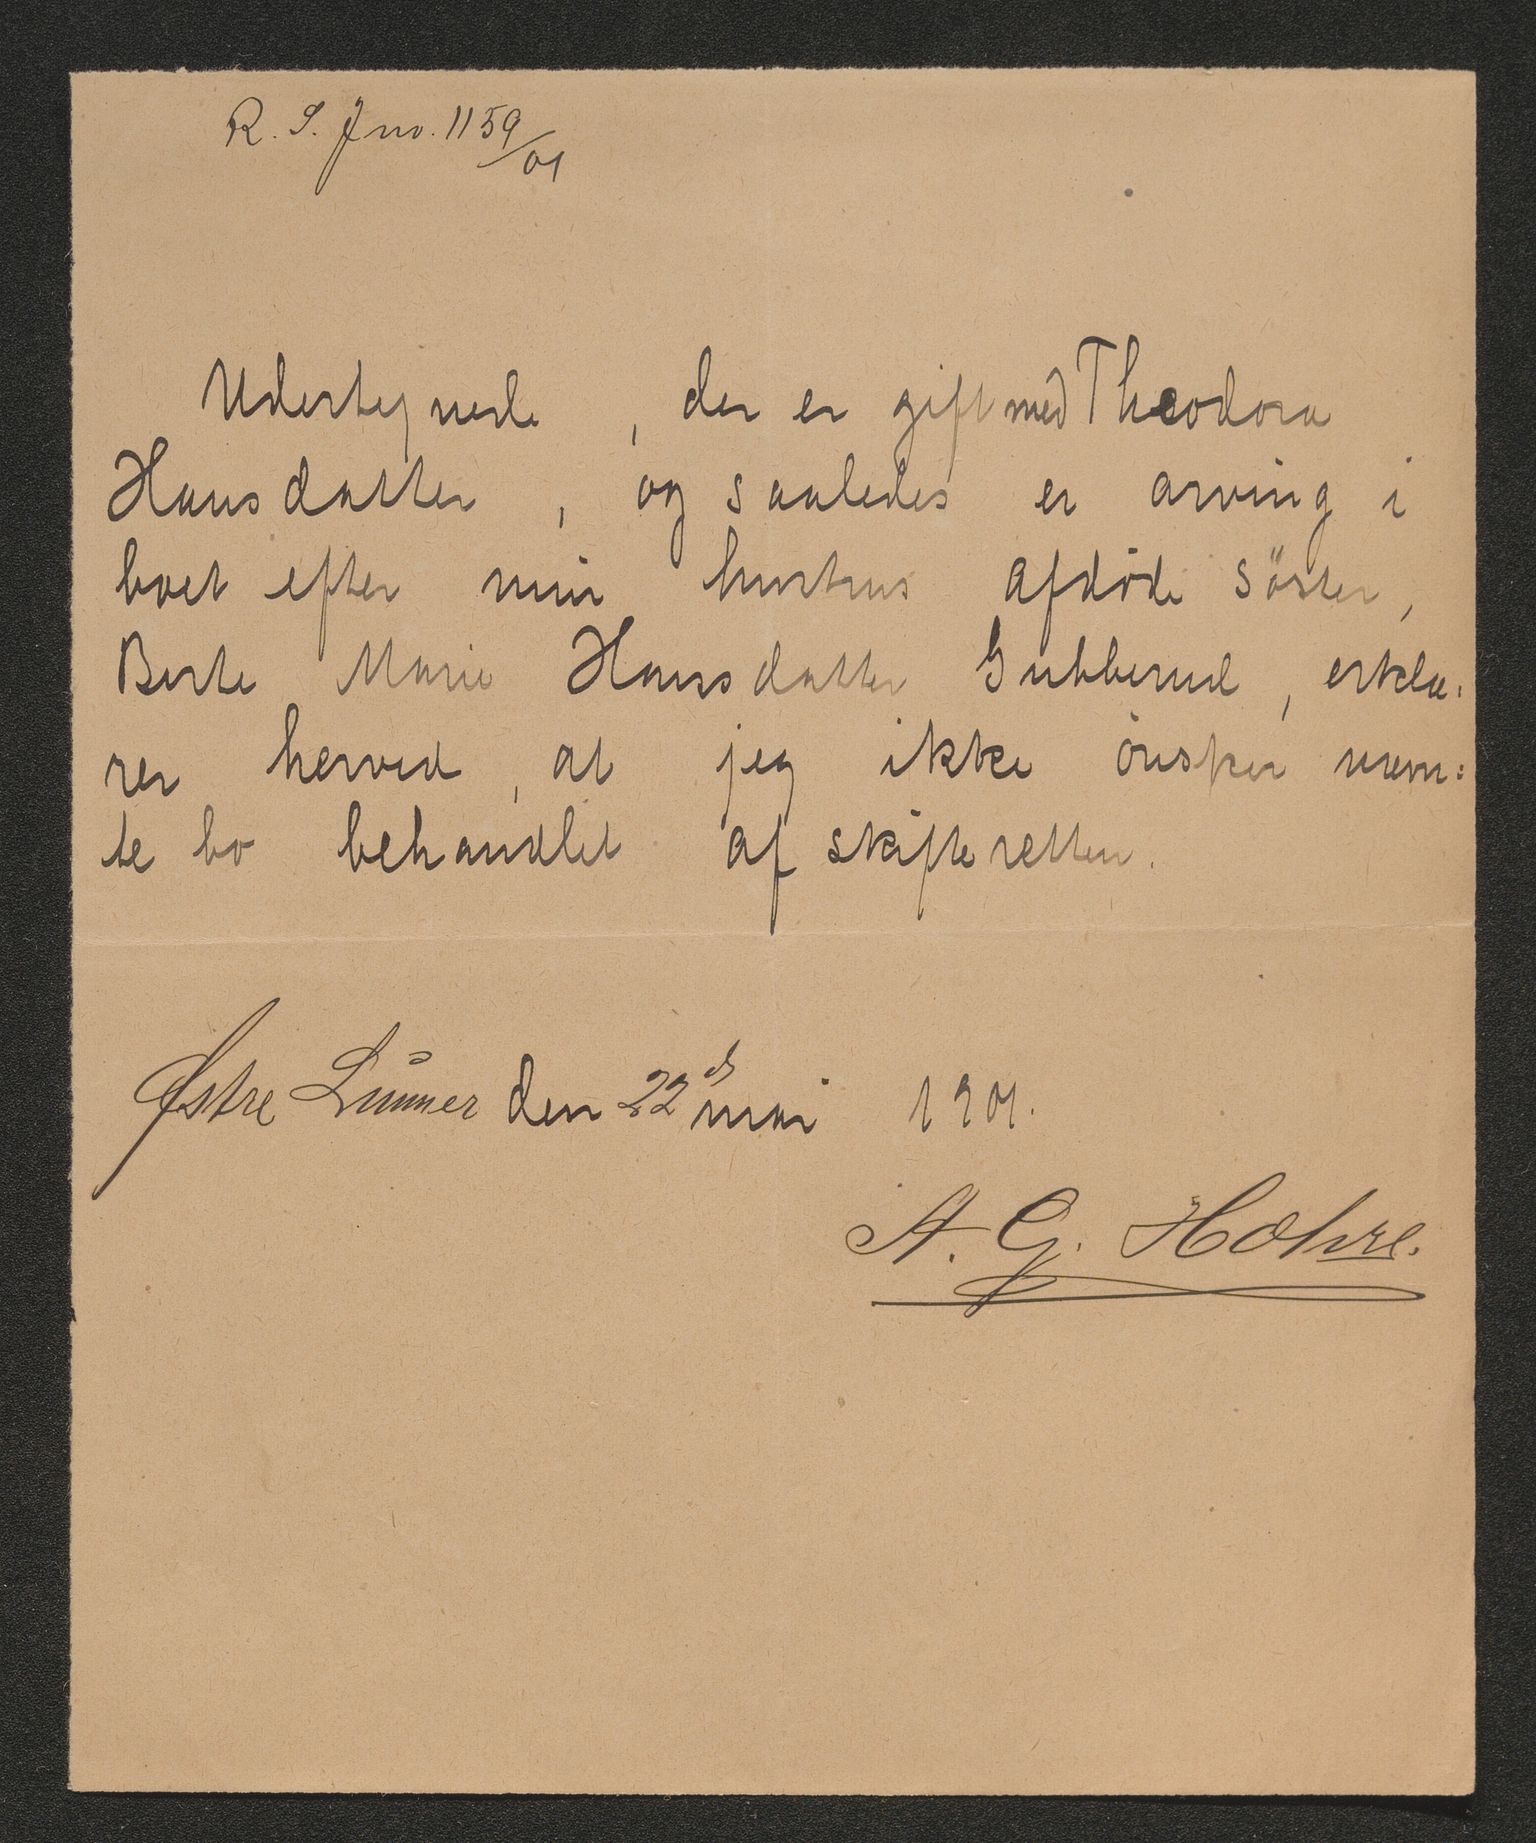 R. S. J no. 1159/01
Udertegnede , der er gift med Theodora
Hansdatter , og saaledes er arving i
boet efter min hustrus afdöde söster,
Berte Marie Hansdatter Gubberud , erklæ:
rer herved , at jeg ikke önsker nævn:
te bo behandlet af skifteretten.
Østre Lunner den 22d mai 1901.
A. G. Hohre.